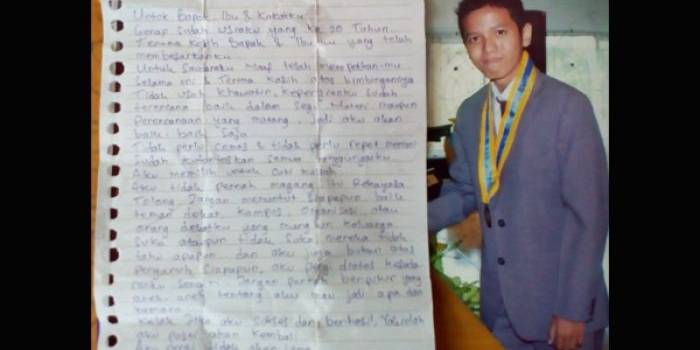 Untuk Bapak, Ibu & Kakakku
Genap sudah usiaku yang ke 20 Tahun
Terima Kasih Bapak & Ibu yang telah
membesarkanku
Untuk Saudaraku Maaf telah merepotkan-mu
Selama ini & Terima Kasih atas bimbingannya
Tidak usah khawatir, Kepergianku sudah
terencana baik dalam segi Materi maupun
Perencanaan yang matang, jadi aku akan
baik-baik saja
Tidak perlu cemas & tidak perlu repot mencari
Sudah semua
Aku memilih untuk Cuti Kuliah
Aku tidak pernah magang, itu Rekayasa
Tolong Jangan menuntut Siapapun baik
teman dekat, Kampus, Organisasi, atau
orang dekatku yang mungkin keluarga
Suka ataupun tidak Suka, mereka tidak
tahu apapun dan aku juga bukan atas
pengaruh Siapapun, aku pergi diatas
Jangan pernah berpikir yang
aneh aneh tentang aku mau jadi apa dan
kemana
Kelak Jika aku sukses dan berhasil,
aku pasti akan Kembali
Aku pergi tidak akan lama